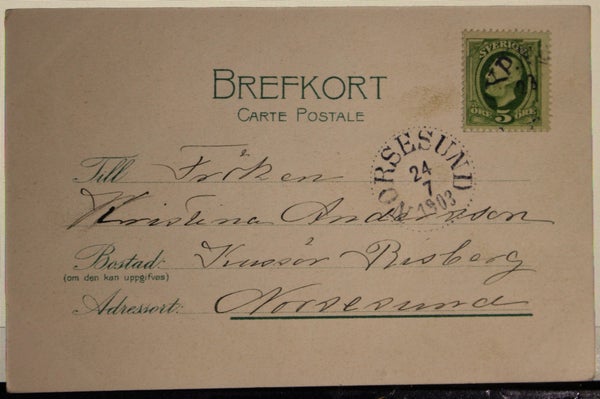 BREFKORT
CARTE POSTALE
SVERIGE
ÖRE 5 ÖRE
NORSESUND
24
7
1903
Till Fröken
Kristina Andersson
Bostad: Risberg
(om den kan uppgifvas)
Adressort: Norsesund